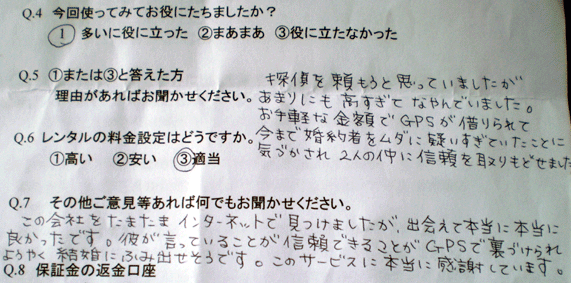 Q.4 今回使ってみてお役にたちましたか？
① 多いに役に立った ②まあまあ ③役に立たなかった
Q.5 ①または③と答えた方
理由があればお聞かせください。
探偵を頼もうと思っていましたが
あまりにも高すぎてなやんでいました。
お手軽な金額でGPSが借りられて
今まで婚約者をムダに疑いすぎていたことに
気づかされ 2人の仲に信頼を取りもどせました
Q.6 レンタルの料金設定はどうですか。
①高い ②安い ③適当
Q.7 その他ご意見等あれば何でもお聞かせください。
この会社をたまたまインターネットで見つけましたが、出会えて本当に本当に
良かったです。彼が言っていることが信頼できることがGPSで裏づけられ
ようやく結婚にふみ出せそうです。このサービスに本当に感謝しています。
Q.8 保証金の返金口座